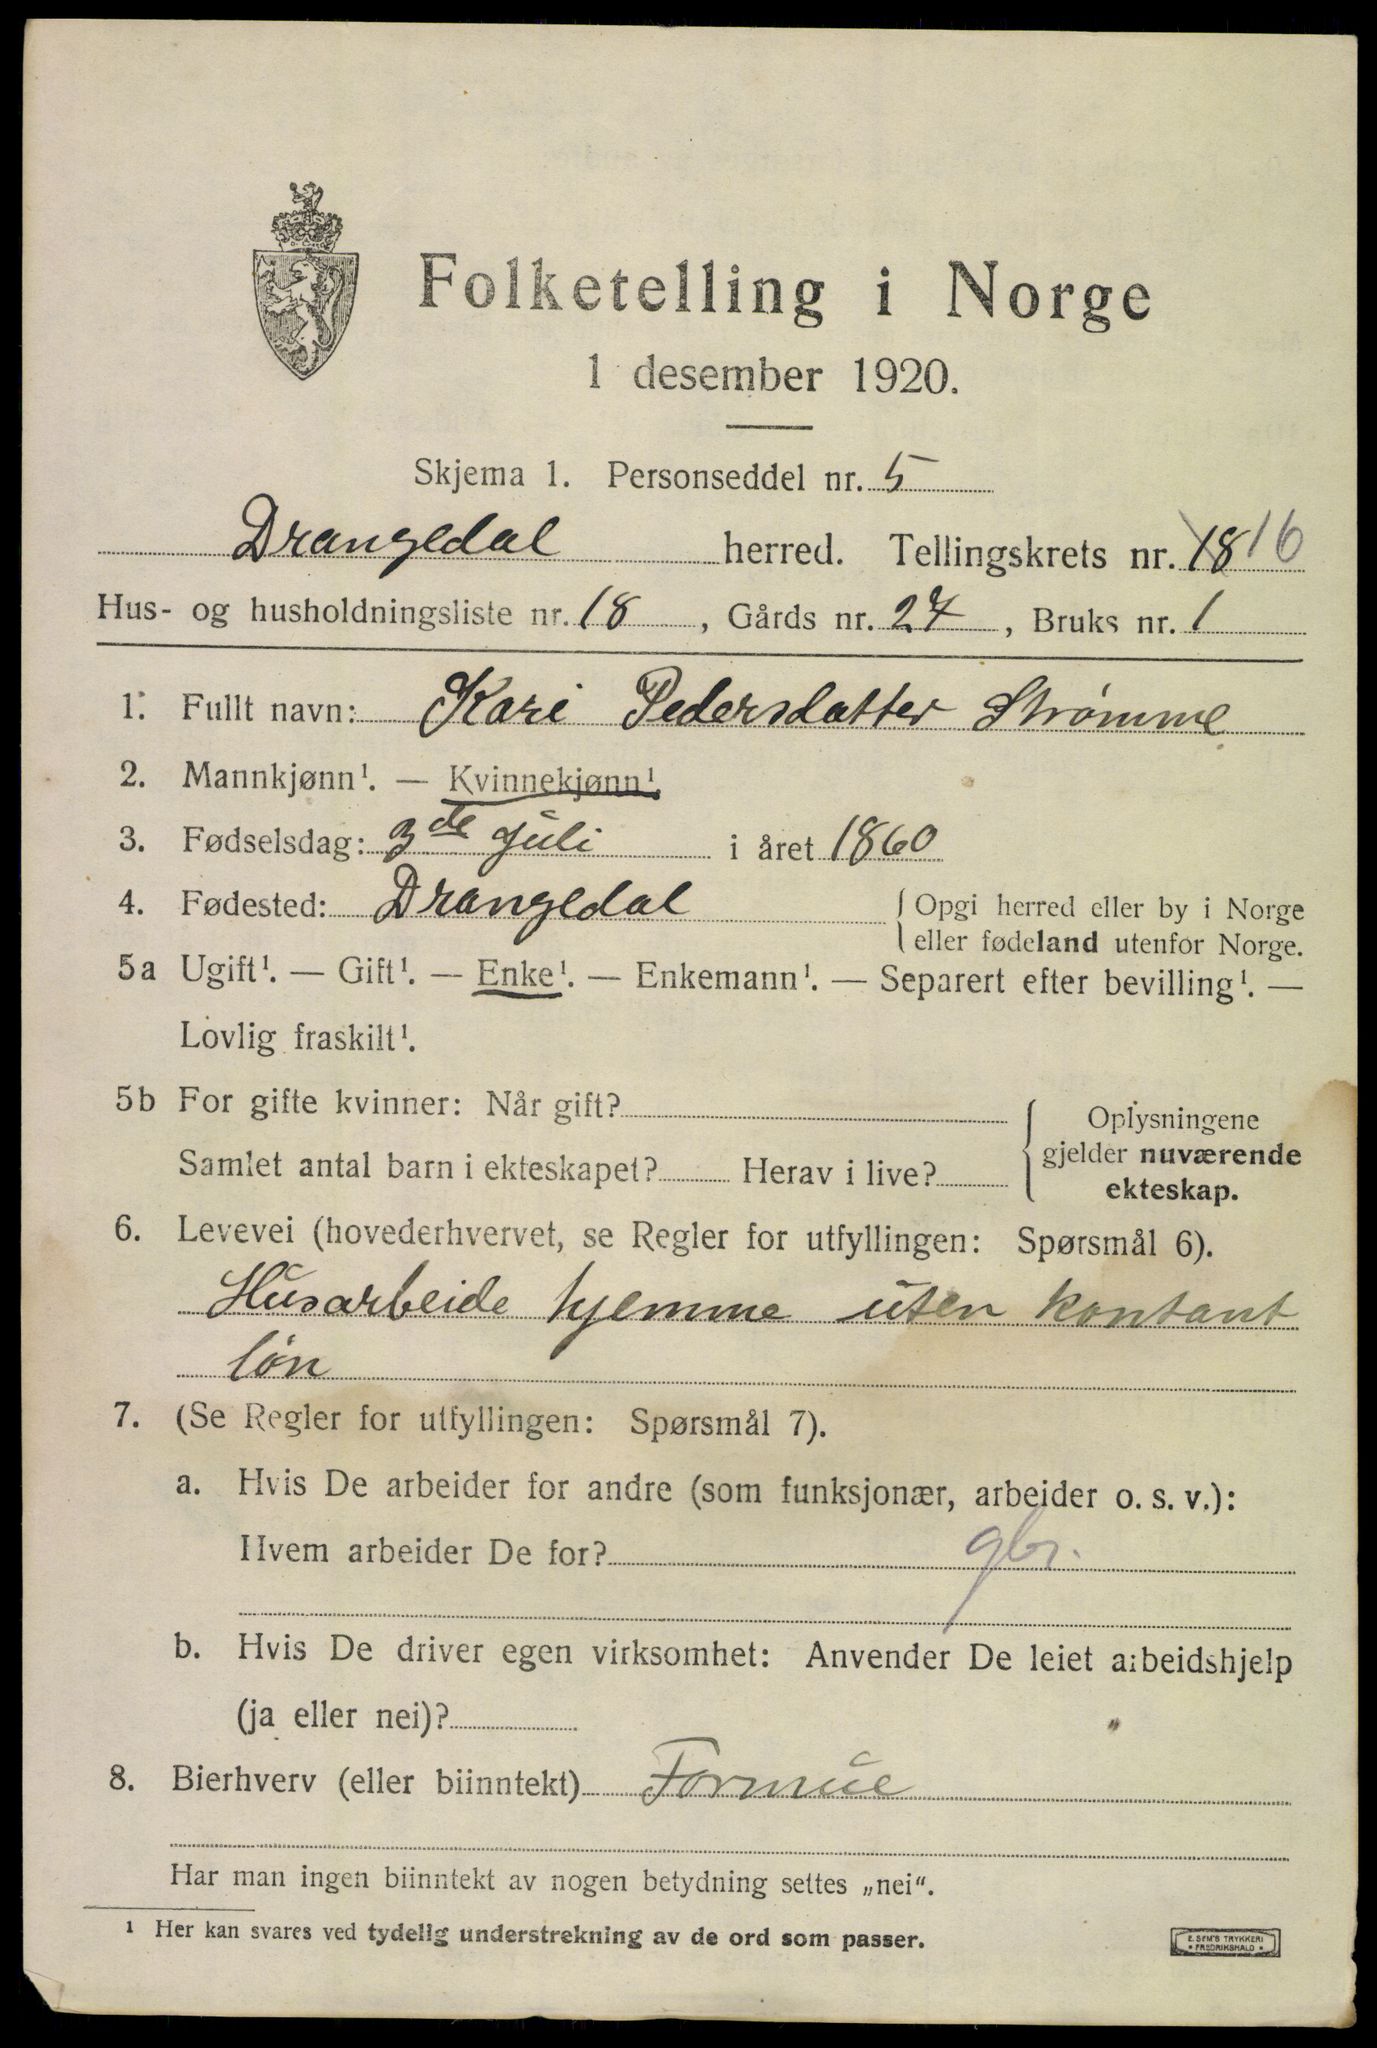 Folketelling i Norge
1 desember 1920.
Skjema 1. Personseddel nr. 5
Drangedal herred. Tellingskrets nr. 18 16
Hus- og husholdningsliste nr. 18, Gårds nr. 24, Bruks nr. 1
1. Fullt navn: Kari Pedersdatter Strømme
2. Mannkjønn¹. — Kvinnekjønn¹.
3. Fødselsdag: 3de juli i året 1860
4. Fødested: Drangedal { Opgi herred eller by i Norge
eller fødeland utenfor Norge.
5a Ugift¹. — Gift¹. — Enke¹. — Enkemann¹. — Separert efter bevilling¹. —
Lovlig fraskilt¹.
5b For gifte kvinner: Når gift? { Oplysningene
gjelder nuværende
Samlet antal barn i ekteskapet? Herav i live? ekteskap.
6. Levevei (hovederhvervet, se Regler for utfyllingen: Spørsmål 6).
Husarbeide hjemme uten kontant
løn
7. (Se Regler for utfyllingen: Spørsmål 7).
a. Hvis De arbeider for andre (som funksjonær, arbeider o. s. v.):
Hvem arbeider De for? gbr.
b. Hvis De driver egen virksomhet: Anvender De leiet arbeidshjelp
(ja eller nei)?
8. Bierhverv (eller biinntekt) Formue
Har man ingen biinntekt av nogen betydning settes „nei".
¹ Her kan svares ved tydelig understrekning av de ord som passer.
E. SEM'S TRYKKERI
* FREDRIKSHALD *